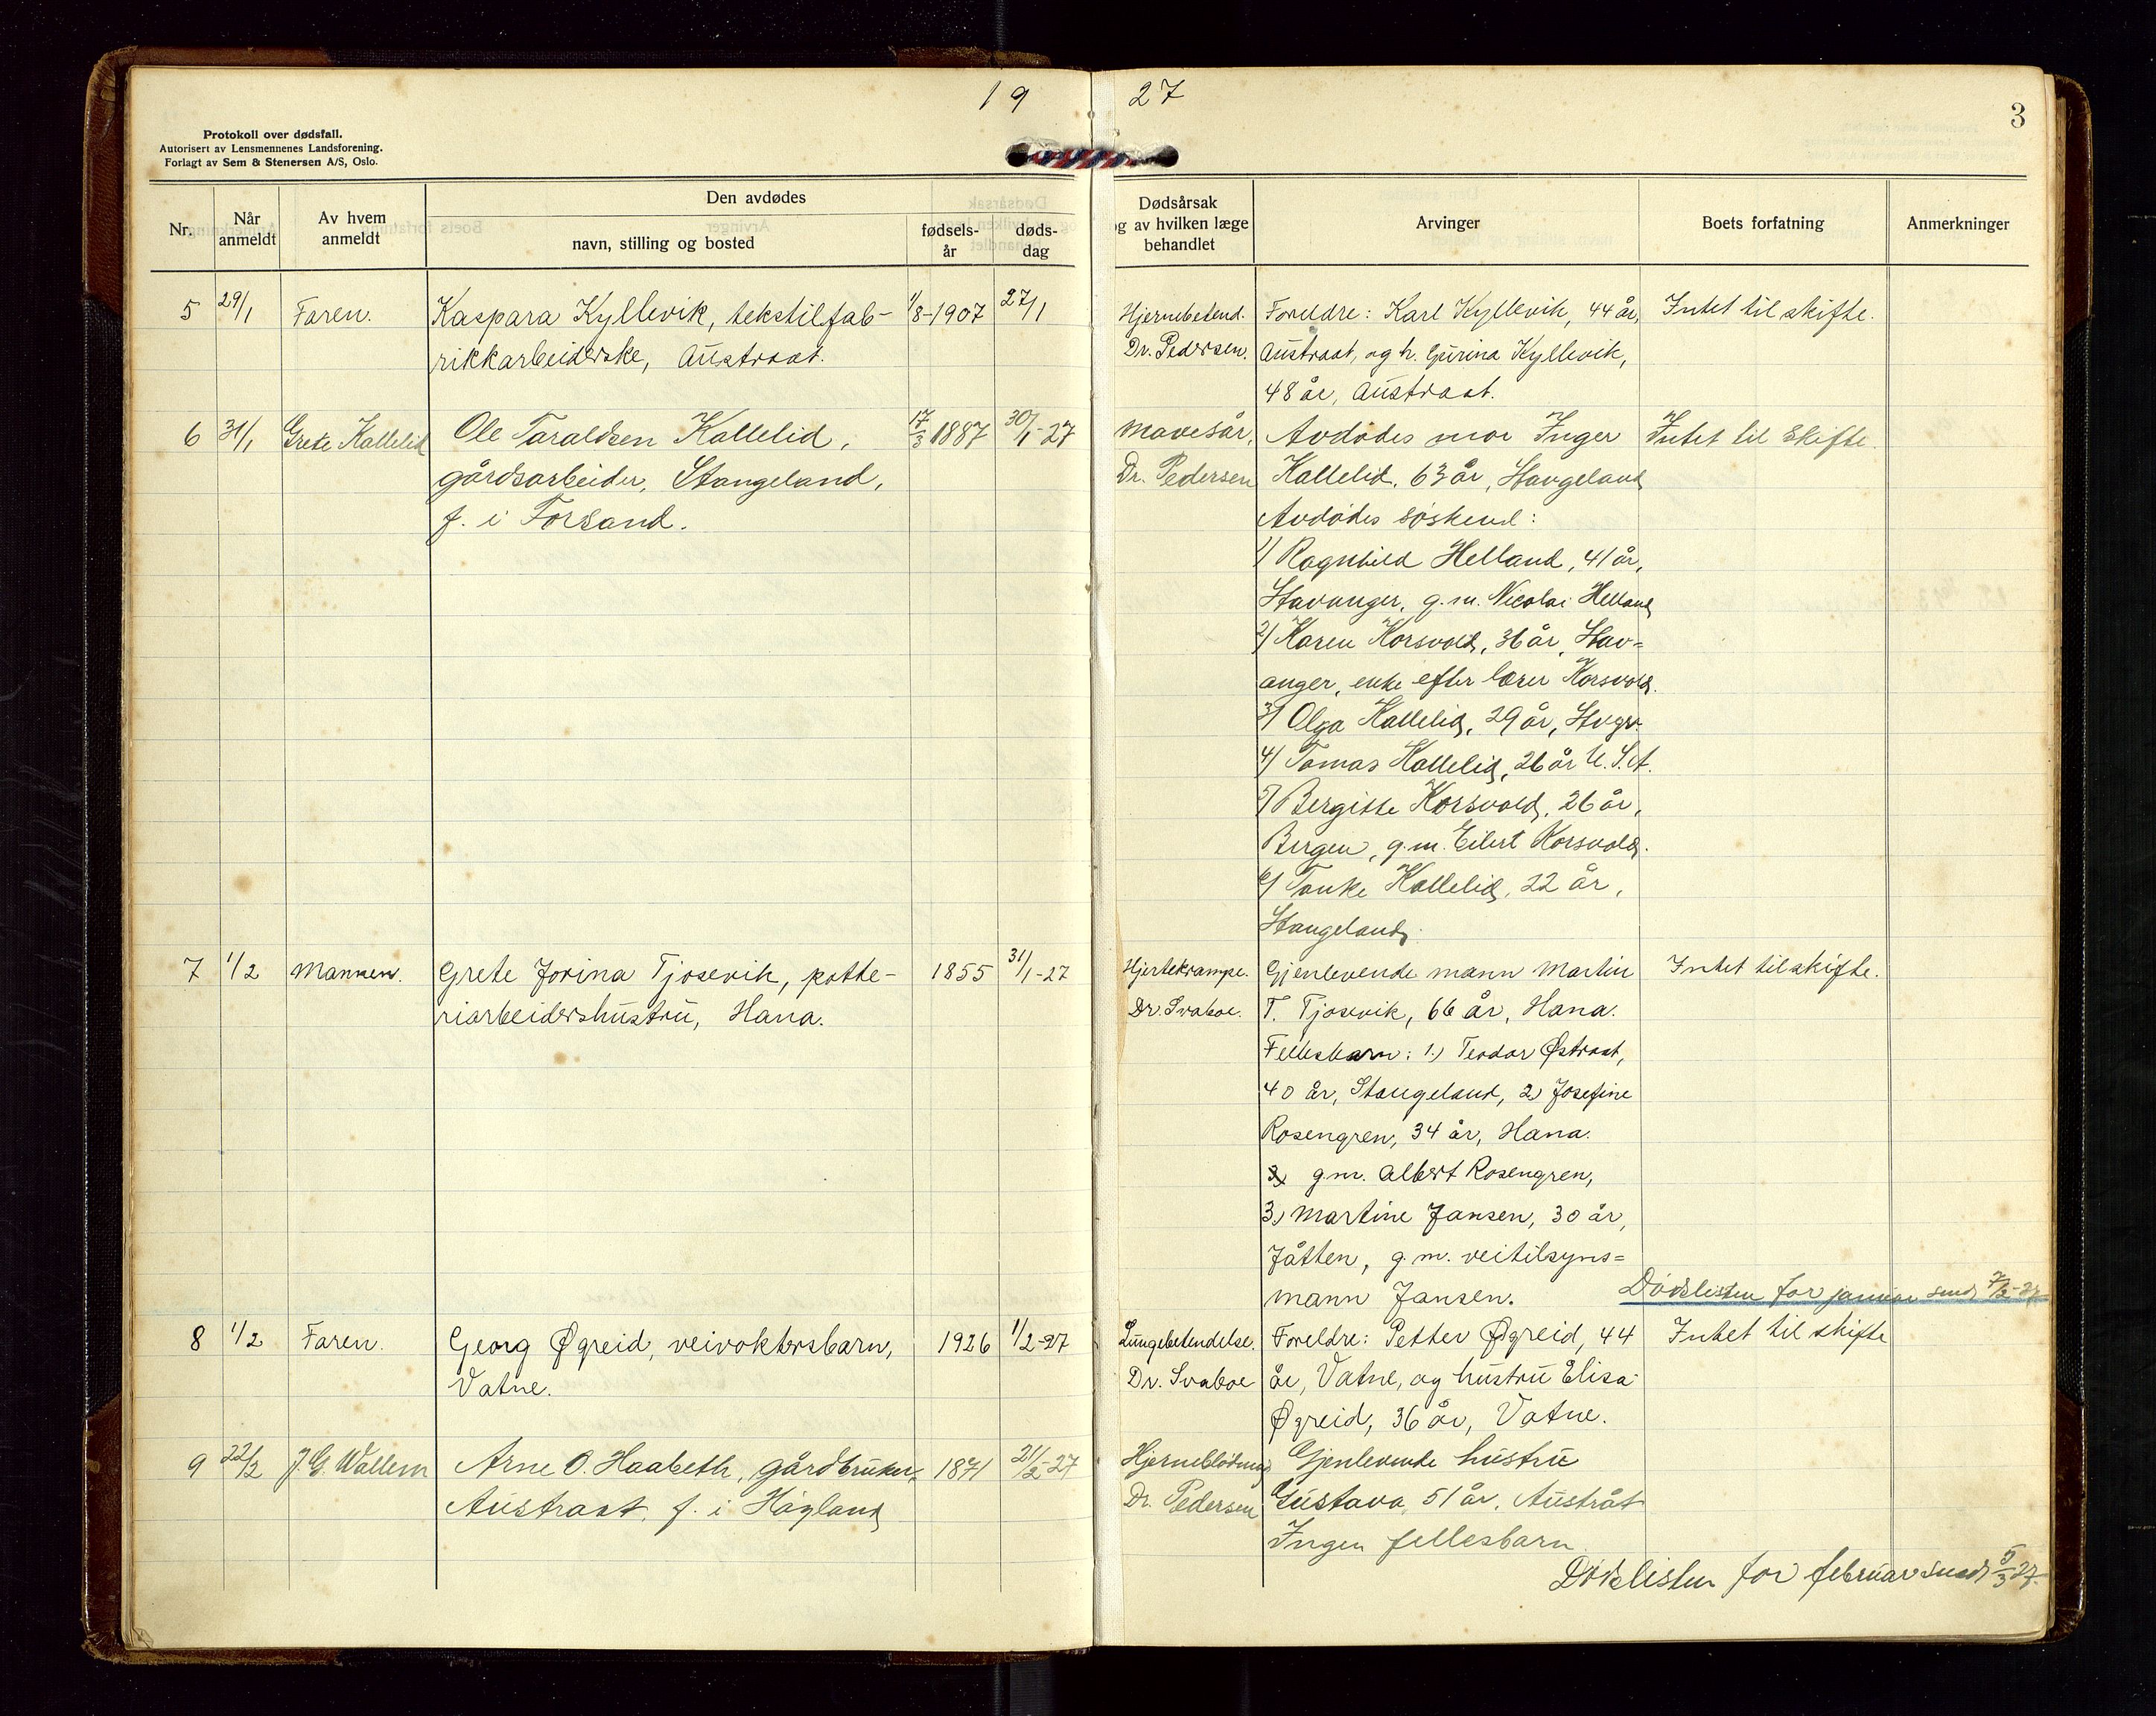 19
27
3
Protokoll over dødsfall.
Autorisert av Lensmennenes Landsforening.
Forlagt av Sem & Stenersen A/S, Oslo.
Nr.
Når anmeldt
Av hvem anmeldt
Den avdødes
navn, stilling og bosted
fødsels-år
døds-dag
Dødsårsak
og av hvilken læge
behandlet
Arvinger
Boets forfatning
Anmerkninger
5 29/1 Faren. Kaspara Kyllevik, tekstilfab- 1/8-1907 27/1
rikkarbeiderske, Austraat.
Hjernebetend.
Dr. Pedersen.
Foreldre: Karl Kyllevik, 44 år,
Austraat, og h. Gurina Kyllevik,
48 år, Austraat.
Intet til skifte.
6 31/1 Grete Kallelid Ole Taraldsen Kallelid, 17/3 1887 30/1-27
gårdsarbeider, Stangeland,
f. i Forsand.
Mavesår,
Dr. Pedersen
Avdødes mor Inger
Kallelid, 63 år, Stangeland
Avdødes søskend:
1/ Ragnhild Helland, 41 år,
Stavanger, g.m. Nicolai Helland
2/ Karen Korsvold, 36 år, Stav=
anger, enke efter lærer Korsvold.
3/ Olga Kallelid, 29 år, Stvgr.
4/ Tomas Kallelid, 26 år U.S.A.
5/ Bergitte Korsvold, 26 år,
Bergen, g.m. Eilert Korsvold.
6/ Tonke Kallelid, 22 år,
Stangeland.
Intet til Skifte.
7 1/2 Mannen. Grete Jorina Tjosevik, potte- 1855 31/1-27
riarbeidershustru, Hana.
Hjertekrampe.
Dr. Svaboe.
Gjenlevende mann Martin
T. Tjosevik, 66 år, Hana.
Fellesbarn: 1.) Teodor Østraat,
40 år, Stangeland, 2) Josefine
Rosengren, 34 år, Hana.
g.m. Albert Rosengren,
3) Martine Jansen, 30 år,
Jåtten, g.m. veitilsyns=
mann Jansen.
Intet til skifte.
Dødslisten for januar send 7/2-27
8 1/2 Faren. Georg Øgreid, veivoktersbarn, 1926 1/2-27
Vatne.
Lungebetendelse.
Dr. Svaboe
Foreldre: Petter Øgreid, 44
år, Vatne, og hustru Elisa
Øgreid, 36 år, Vatne.
Intet til skifte
9 22/2 J. G. Wallem Arne O. Haabeth, gårdbruker, 1871 21/2-27
Austraat, f. i Høgland
Hjerneblødning
Dr. Pedersen
Gjenlevende hustru
Gustava, 51 år, Austråt
Ingen fellesbarn.
Dødslisten for februar send 5/3 27.